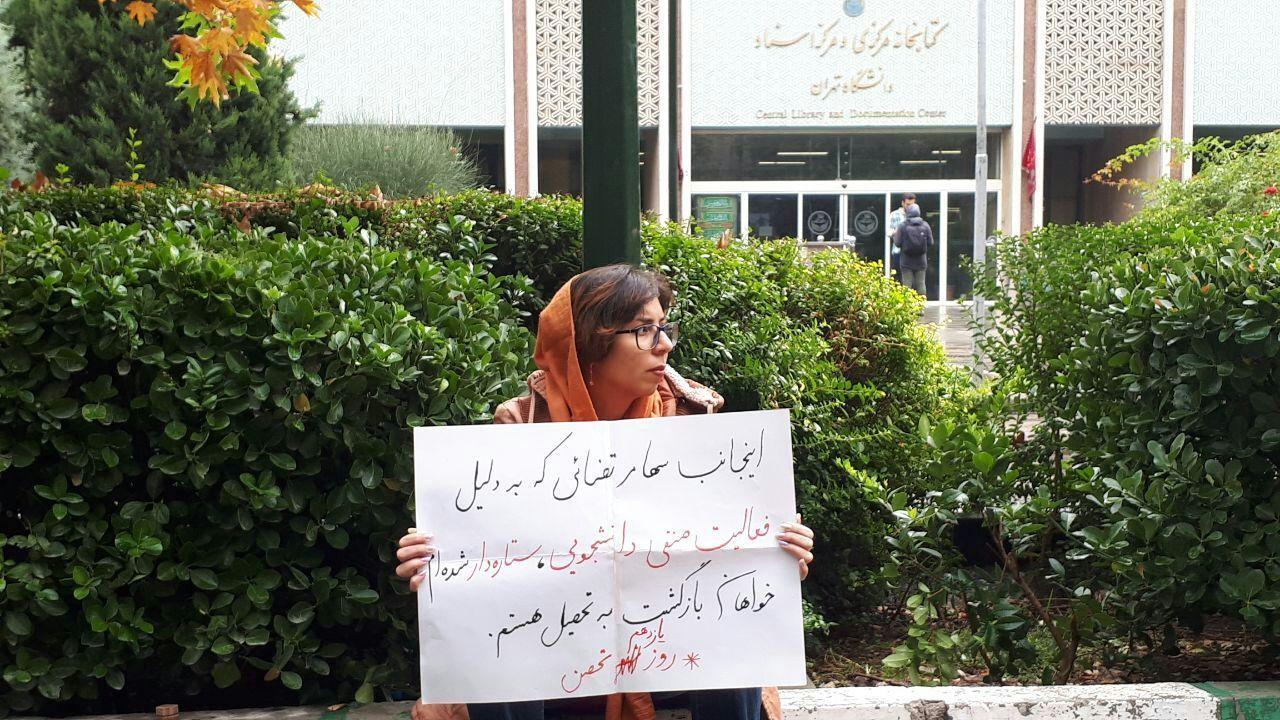 کتابخانه مرکزی و مرکز اسناد
دانشگاه تهران
Central Library and Documentation Center
اینجانب سها مرتضائی که به دلیل
فعالیت صنفی دانشجویی، ستاره‌دار شده‌ام
خواهان بازگشت به تحصیل هستم.
* روز یازدهم تحصن